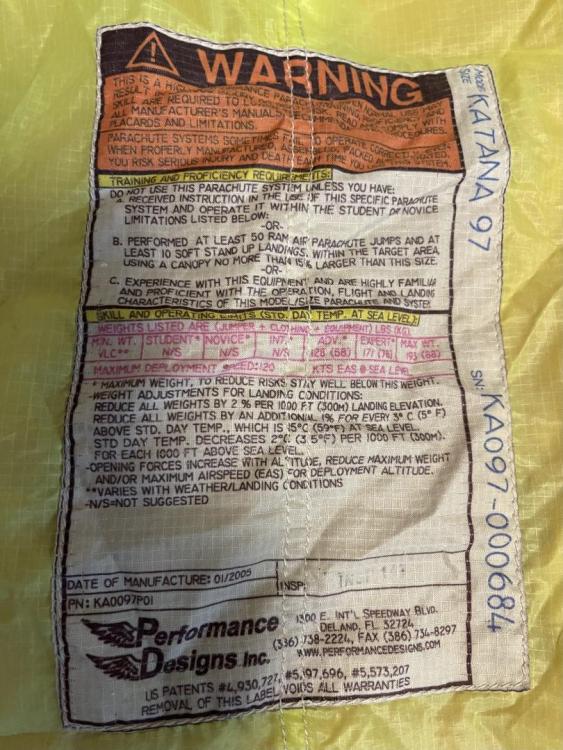 WARNING
THIS IS A HIGH PERFORMANCE PARACHUTE
RESULT
SKILL ARE REQUIRED TO
ALL MANUFACTURER'S MANUALS, COMPLY WITH
PLACARDS AND LIMITATIONS. PROCEDURES,
PARACHUTE SYSTEMS SOMETIMES TO OPERATE CORRECTLY, EVEN
WHEN PROPERLY MANUFACTURED, ASSEMBLED, PACKED AND OPERATED,
YOU RISK SERIOUS INJURY AND DEATH EACH TIME YOU USE SYSTEM.
TRAINING AND PROFICIENCY REQUIREMENTS:
DO NOT USE THIS PARACHUTE SYSTEM UNLESS YOU HAVE:
A. RECEIVED INSTRUCTION IN THE USE OF THIS SPECIFIC PARACHUTE
SYSTEM AND OPERATE IT WITHIN THE STUDENT OR NOVICE
LIMITATIONS LISTED BELOW:
-OR-
B. PERFORMED AT LEAST 50 RAM AIR PARACHUTE JUMPS AND AT
LEAST 10 SOFT STAND UP LANDINGS, WITHIN THE TARGET AREA,
USING A CANOPY NO MORE THAN 15% LARGER THAN THIS SIZE.
-OR-
C. EXPERIENCE WITH THIS EQUIPMENT AND ARE HIGHLY FAMILIAR
AND PROFICIENT WITH THE OPERATION, FLIGHT AND LANDING
CHARACTERISTICS OF THIS MODEL/SIZE PARACHUTE AND SYSTEM
SKILL AND OPERATING LIMITS (STD. DAY TEMP. AT SEA LEVEL):
WEIGHTS LISTED ARE (JUMPER + CLOTHING + EQUIPMENT) LBS (KG)
MIN. WT. STUDENT* NOVICE* INT.* ADV.* EXPERT* MAX WT.
VLC** N/S N/S N/S 128 (58) 171 (78) 193 (88)
MAXIMUM DEPLOYMENT SPEED: 120 KTS EAS @ SEA LEVEL
* MAXIMUM WEIGHT, TO REDUCE RISKS STAY WELL BELOW THIS WEIGHT.
-WEIGHT ADJUSTMENTS FOR LANDING CONDITIONS:
REDUCE ALL WEIGHTS BY 2 % PER 1000 FT (300M) LANDING ELEVATION.
REDUCE ALL WEIGHTS BY AN ADDITIONAL 1% FOR EVERY 3° C (5° F)
ABOVE STD. DAY TEMP., WHICH IS 15°C (59°F) AT SEA LEVEL.
STD DAY TEMP. DECREASES 2°C (3.5°F) PER 1000 FT (300M).
FOR EACH 1000 FT ABOVE SEA LEVEL.
-OPENING FORCES INCREASE WITH ALTITUDE, REDUCE MAXIMUM WEIGHT
AND/OR MAXIMUM AIRSPEED (EAS) FOR DEPLOYMENT ALTITUDE.
**VARIES WITH WEATHER/LANDING CONDITIONS
-N/S=NOT SUGGESTED
DATE OF MANUFACTURE: 01/2005 INSP:
PN: KA0097P01
Performance
Designs Inc.
1300 E. INT'L SPEEDWAY BLVD.
DELAND, FL 32724
(386) 738-2224, FAX (386) 734-8297
WWW.PERFORMANCEDESIGNS.COM
US PATENTS #4,930,727, #5,197,696, #5,573,207
REMOVAL OF THIS LABEL VOIDS ALL WARRANTIES
MODEL
SIZE KATANA 97
SN: KA097-000684